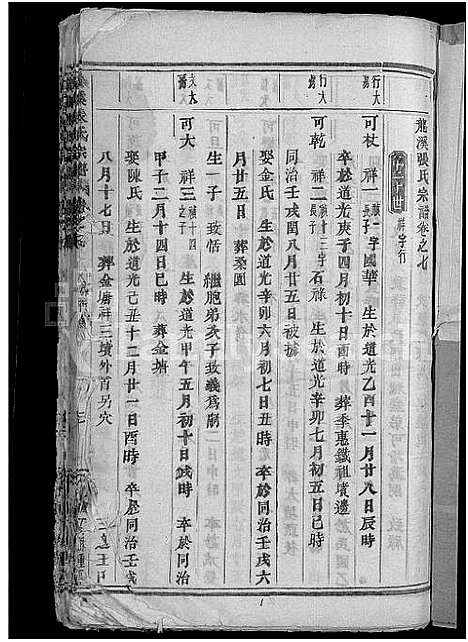 龍溪張氏宗譜卷之七
第二十世 祥字行
行大 房
可杖 祥一 禎二長子 字國華 生於道光乙酉十一月廿八日辰時
卒於道光庚子四月初十日酉時 葬季惠鐵祖墳邊
行大 房
可乾 祥二 禎十三長子 字石祿 生於道光辛卯七月初五日巳時
同治壬戌閏八月廿五日被擄
娶金氏 生於道光辛卯六月初七日丑時 卒於同治壬戌六
月廿五日 葬桑園
生一子 致恬 繼胞弟亥子致義為嗣
文大 房
可大 祥三 禎十四之子 生於道光甲午五月初十日戌時 卒於同治
甲子二月十四日巳時 葬金塘
娶陳氏 生於道光己丑十二月廿一日酉時 卒於同治壬戌
八月十七日 葬金塘祥三墳外首另穴